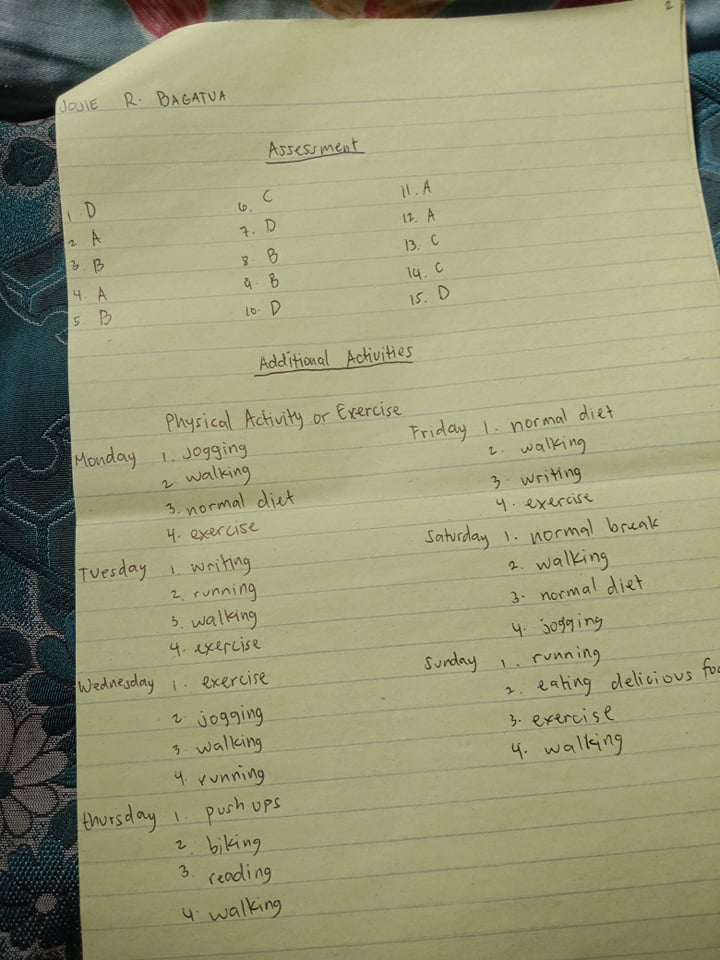 2
JOVIE R. BAGATUA
Assessment
1. D
2. A
3. B
4. A
5. B
6. C
7. D
8. B
9. B
10. D
11. A
12. A
13. C
14. C
15. D
Additional Activities
Physical Activity or Exercise
Monday 1. jogging
2. walking
3. normal diet
4. exercise
Tuesday 1. writing
2. running
3. walking
4. exercise
Wednesday 1. exercise
2. jogging
3. walking
4. running
thursday 1. push ups
2. biking
3. reading
4. walking
Friday 1. normal diet
2. walking
3. writing
4. exercise
Saturday 1. normal break
2. walking
3. normal diet
4. jogging
Sunday 1. running
2. eating delicious foo
3. exercise
4. walking